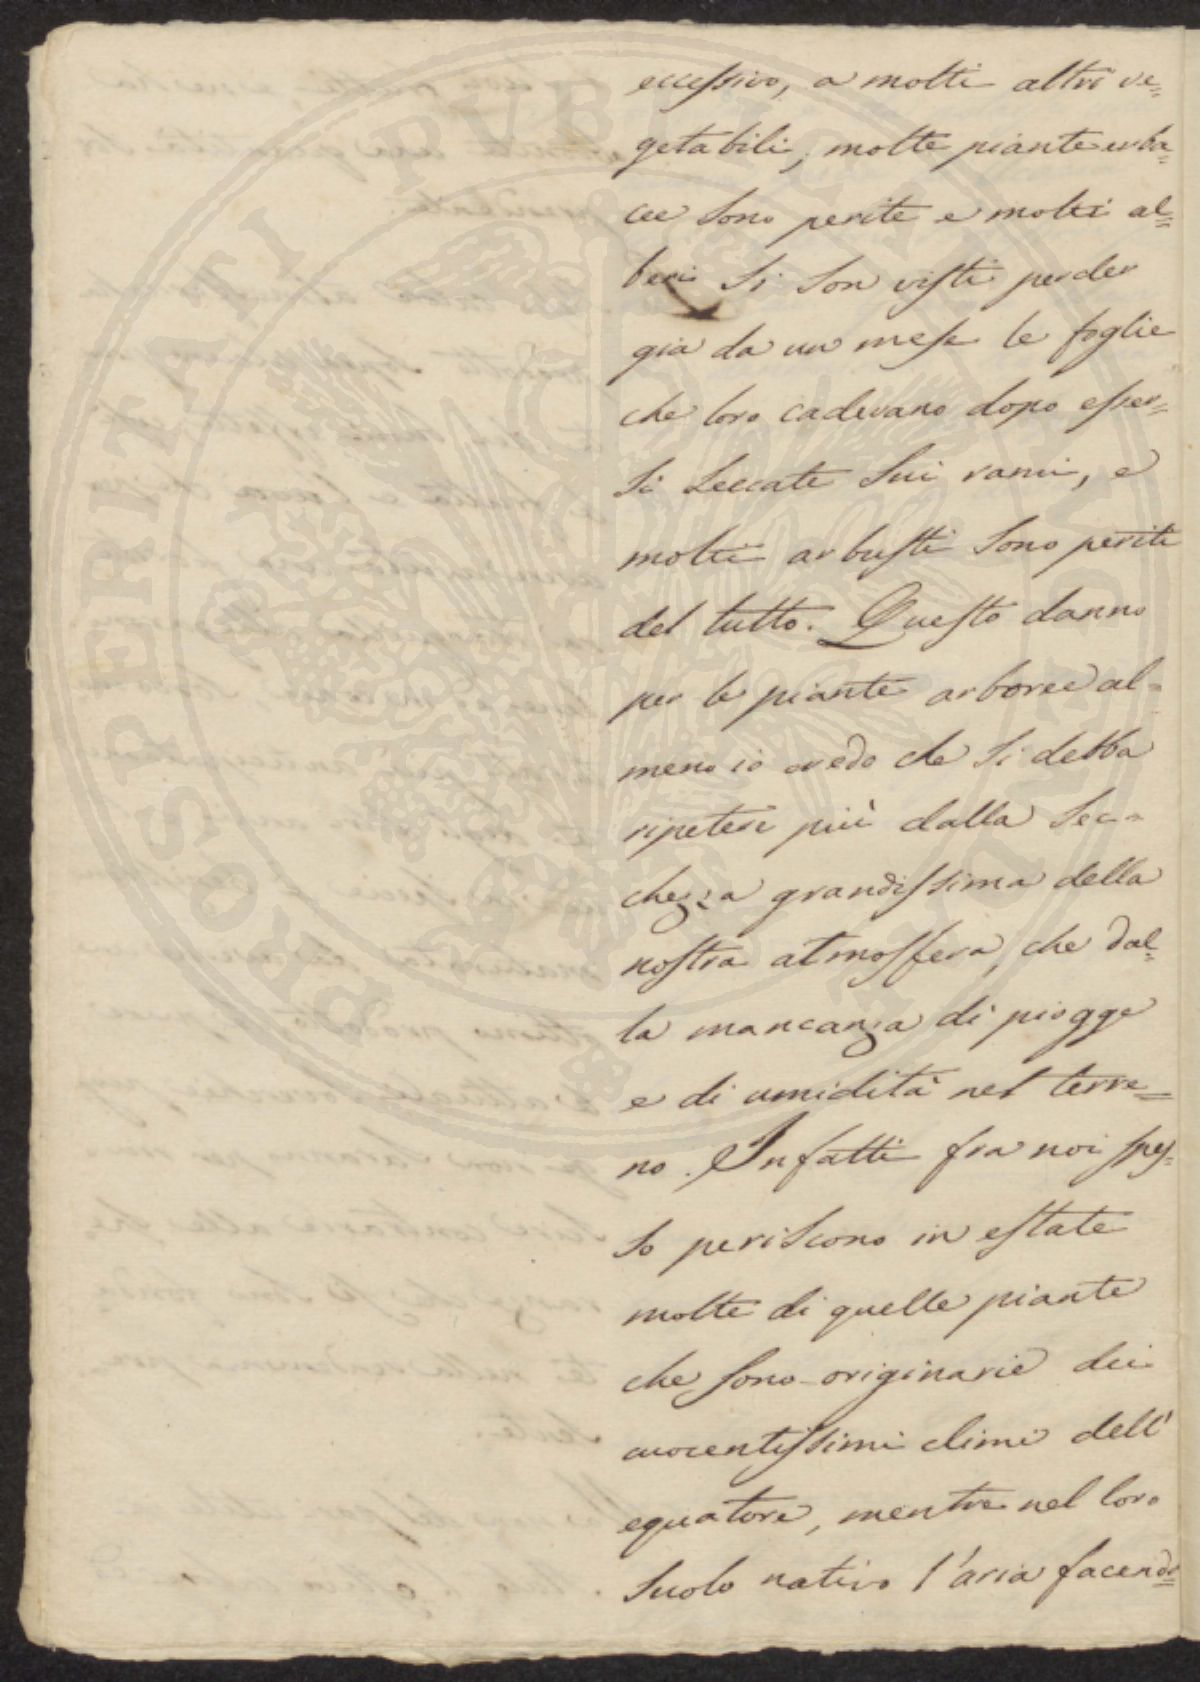 eccessivo, a molti altri ve=
getabili; molte piante erba=
cee sono perite e molti al=
beri si son visti perder
gia da un mese le foglie
che loro cadevano dopo esser=
si seccate sui rami, e
molti arbusti sono periti
del tutto. Questo danno
per le piante arboree al=
meno io credo che si debba
ripetere più dalla sec=
chezza grandissima della
nostra atmosfera, che dal=
la mancanza di piogge
e di umidità nel terre=
no. Infatti fra noi spes=
so periscono in estate
molte di quelle piante
che sono originarie dei
cuocentissimi climi dell'
equatore, mentre nel loro
suolo nativo l'aria facendo=
PROSPERITATI PUBLICAE